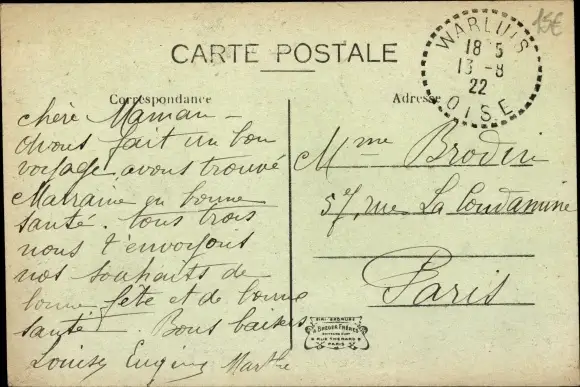 15€
CARTE POSTALE
WARLUIS
18 35
13 -8
22
OISE
Correspondance
Adresse
chère Maman –
avons fait un bon
voyage avons trouvé
Marraine en bonne
santé. tous trois
nous t'envoyons
nos souhaits de
bonne fête et de bonne
santé. Bons baisers
Louise Eugène Marthe
Mme Brodin
57, rue La Condamine
Paris
BREGER FRÈRES
9 RUE THENARD 9
PARIS